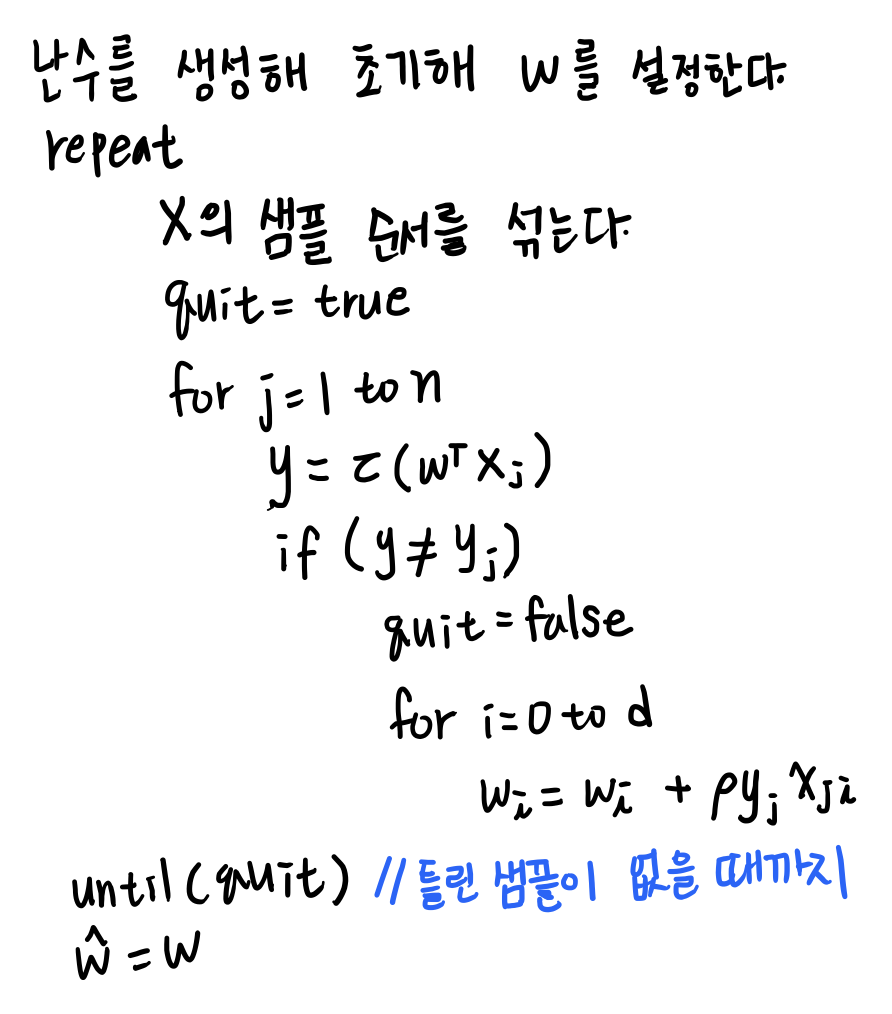 난수를 생성해 초기해 w를 설정한다.
repeat
X의 샘플 순서를 섞는다.
quit = true
for j=1 to n
y = τ(wᵀxⱼ)
if (y≠yⱼ)
quit = false
for i=0 to d
wᵢ = wᵢ + ρyⱼxⱼᵢ
until(quit) //틀린 샘플이 없을 때까지
ŵ = w